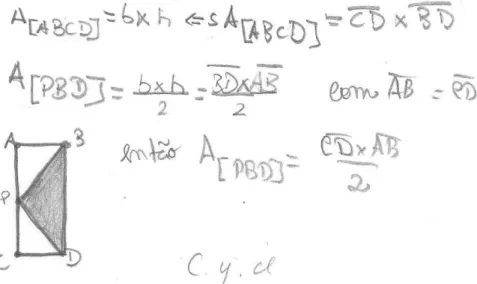 A[ABCD] = b x h <=s A[ABCD] = CD x BD
A[PBD] = b x h / 2 = BD x AB / 2 com AB = CD
A B
então A[PBD] = CD x AB / 2
P
C D
C. y. d